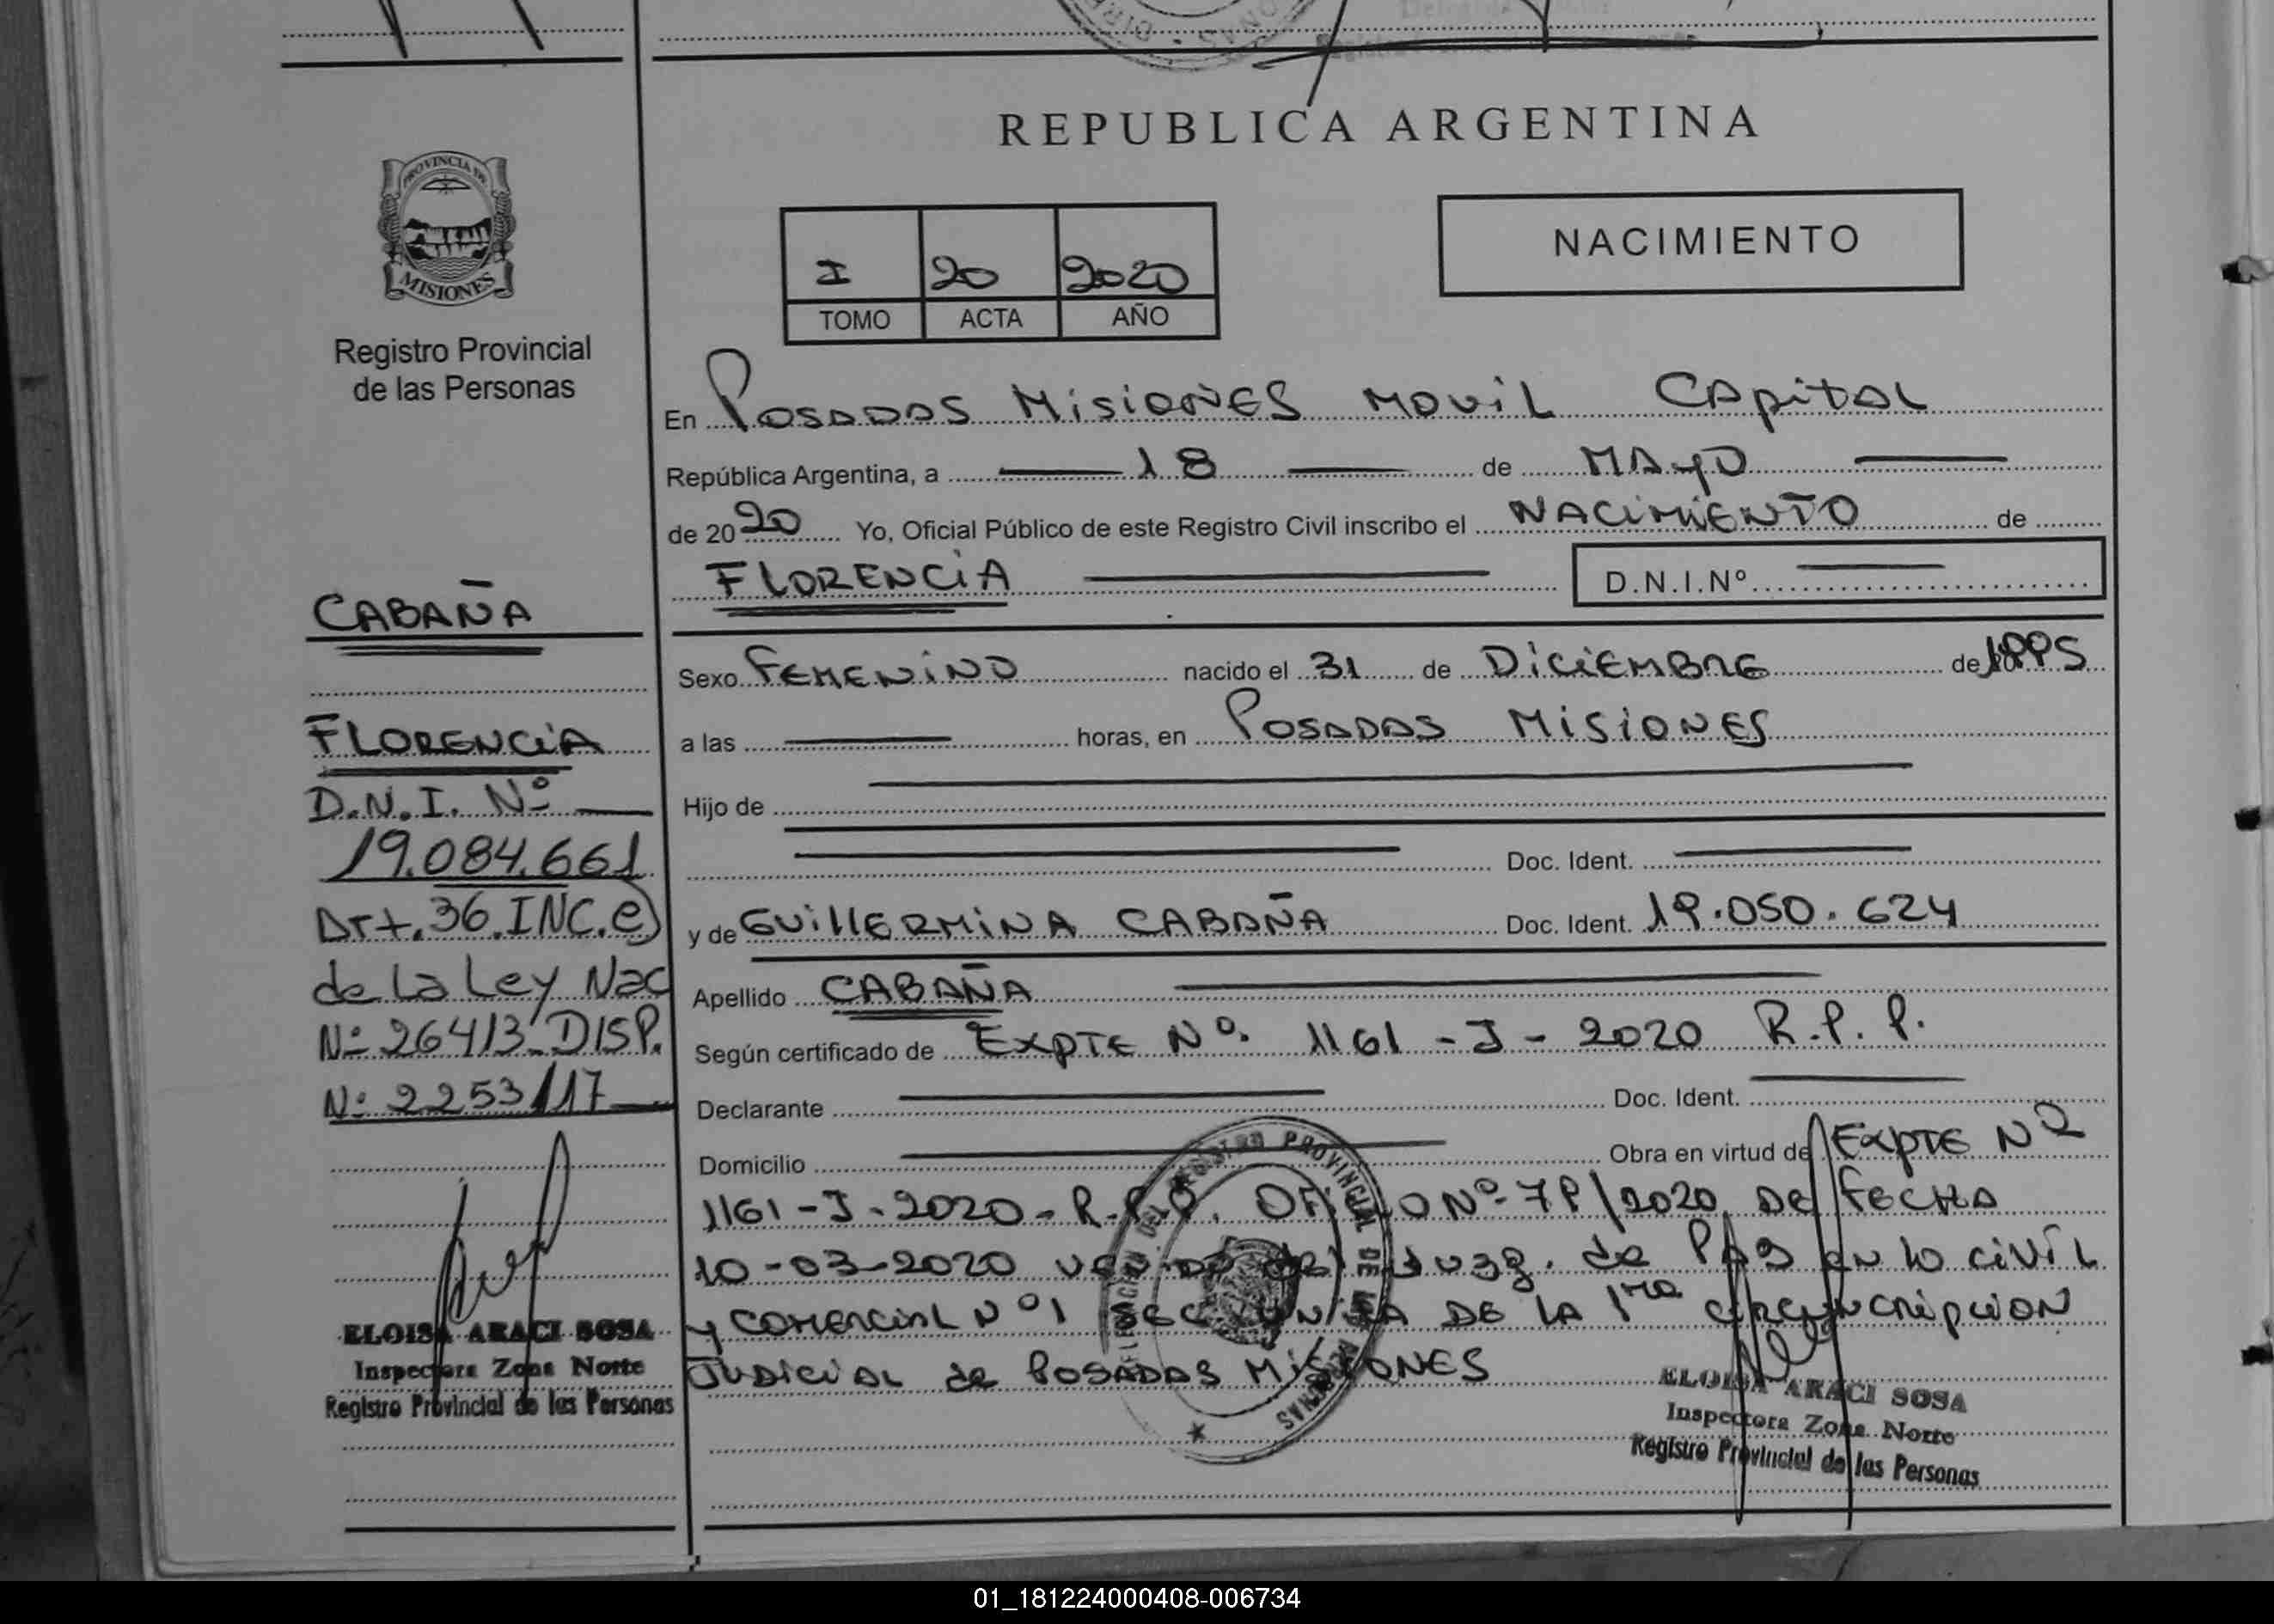 REPUBLICA ARGENTINA
PROVINCIA DE
MISIONES
Registro Provincial
de las Personas
I 20 2020
TOMO ACTA AÑO
NACIMIENTO
En Posadas Misiones Movil Capital
República Argentina, a 18 de Mayo
de 2020 Yo, Oficial Público de este Registro Civil inscribo el NACIMIENTO de
FLORENCIA D.N.I.Nº
CABAÑA
FLORENCIA
D.N.I. Nº
19.084.661
Art. 36 INC. e)
de la Ley Nac
Nº 26413 DISP.
Nº 2253/17
ELOISA ARACI SOSA
Inspectora Zona Norte
Registro Provincial de las Personas
Sexo Femenino nacido el 31 de Diciembre de 1995
a las horas, en Posadas Misiones
Hijo de
Doc. Ident.
y de Guillermina Cabaña Doc. Ident. 19.050.624
Apellido CABAÑA
Según certificado de Expte Nº 1161 - J - 2020 R.P.P.
Declarante Doc. Ident.
Domicilio Obra en virtud de Expte Nº
1161 - J - 2020 - R.P.P. Oficio Nº 79/2020 De Fecha
10-03-2020 del Juzg. de Paz en lo civil
y comercial Nº 1 Sec Unica De la 1ra circuncripcion
Judicial de Posadas Misiones
REGISTRO PROVINCIAL DE LAS PERSONAS
ELOISA ARACI SOSA
Inspectora Zona Norte
Registro Provincial de las Personas
01_181224000408-006734